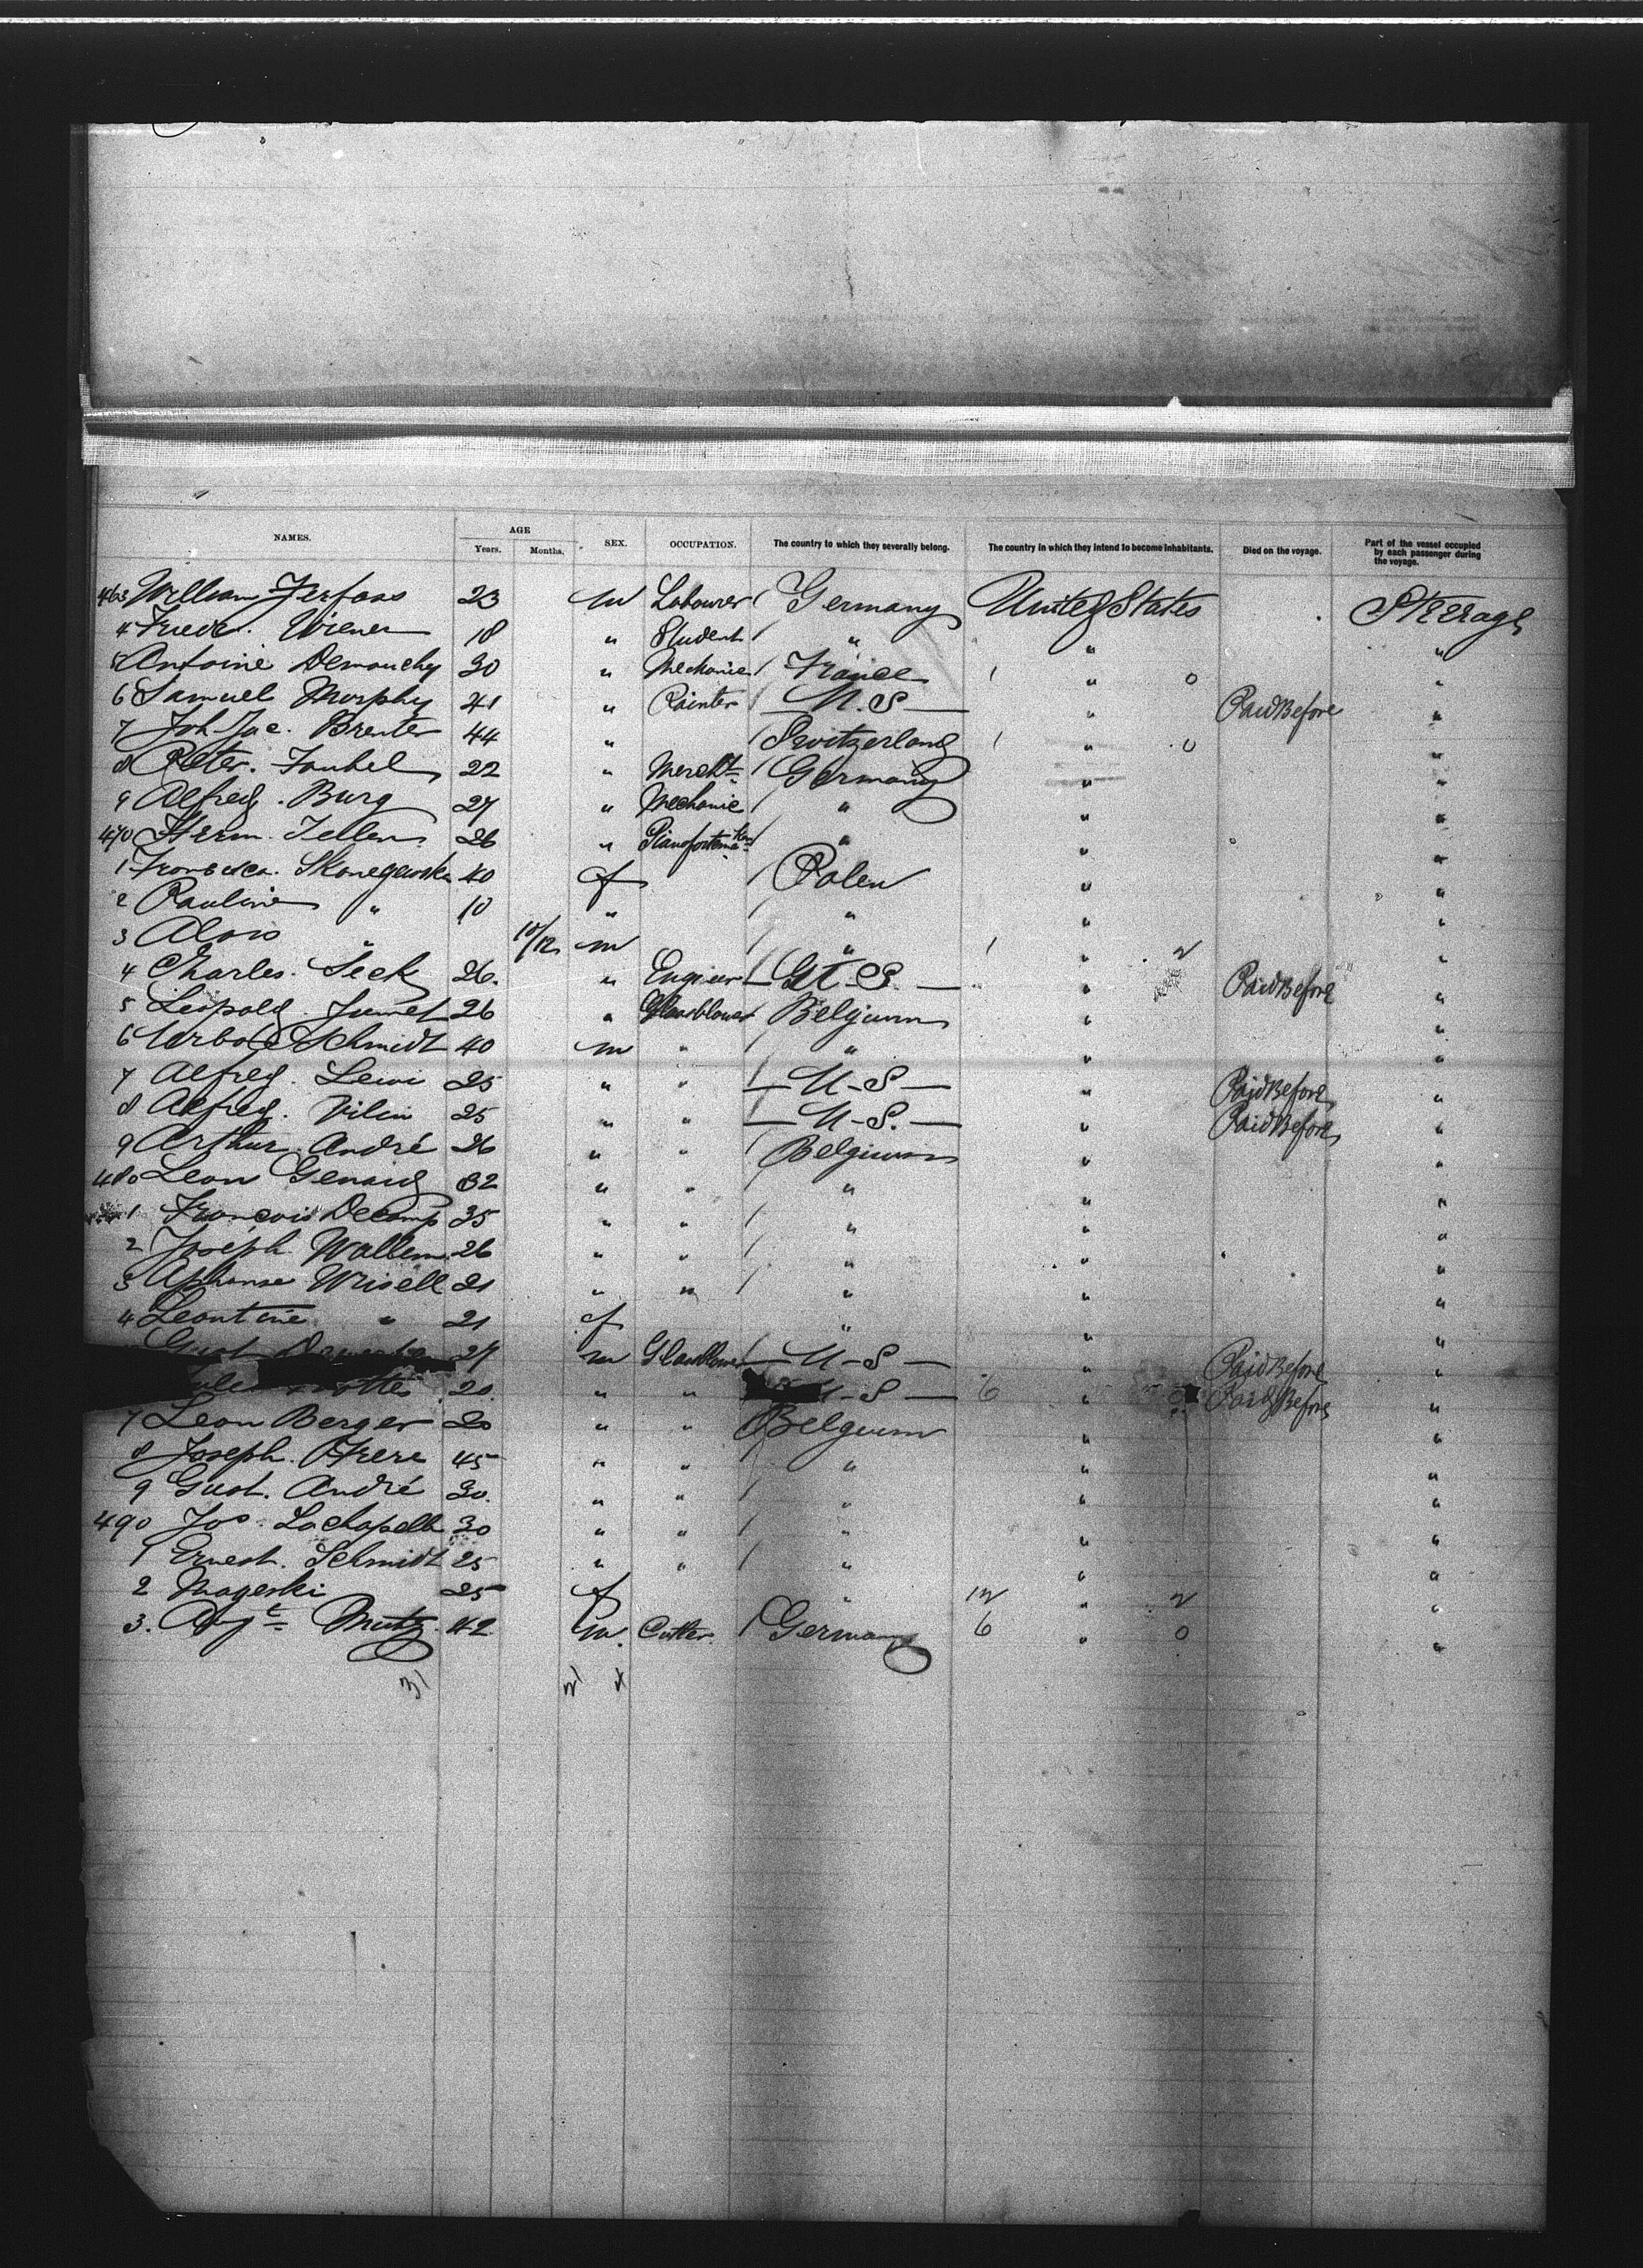 NAMES. AGE Years. Months. SEX. OCCUPATION. The country to which they severally belong. The country in which they intend to become inhabitants. Died on the voyage. Part of the vessel occupied by each passenger during the voyage.
463 William 23 m Labourer / Germany United States Steerage
4 Wiener 18 " Student / " " "
5 Antoine Demouchy 30 " Mechanic / France 1 " 0 "
6 Samuel Morphy 41 " Painter — U.S — " Paid Before "
7 Joh Jac. Brenter 44 " / Switzerland 1 " 0 "
8 Peter. 22 " Mercht / Germany " "
9 Alfred. Burg 27 " Mechanic / " " "
470 Herm. Tellen 26 " Pianofortemaker / " " "
1 40 f / Polen " "
2 Pauline " 10 " / " " "
3 Alois " 10/12 m / " 1 " 2 "
4 Charles. Seck 26. " Engieer — U.S. — " Paid Before "
5 Leopold. Jumet 26 " Glassblower / Belgium " "
6 Schmidt 40 m " / " " "
7 Alfred. Lewi 25 " " — U-S — " Paid Before "
8 Alfred. Vilin 25 " " — U-S. — " Paid Before "
9 Arthur. André 26 " " / Belgium " "
480 Leon Genard 32 " " / " " "
1 François Decamp 35 " " / " " "
2 Joseph. Wallem 26 " " / " " "
3 Aphonse Wisell 21 " " / " " "
4 Leontine " 21 f " " "
Gust 27 m Glassblower — U-S — " Paid Before "
20 " " U-S — 6 " Paid Before "
7 Leon Berger 20 " " Belgium " "
8 Joseph. Frere 45 " " / " " "
9 Gust. André 30. " " / " " "
490 Jos. Lachapelle 30 " " / " " "
1 Ernest. Schmidt 25 " " / " " "
2 Mageski 25 f " 12 2 "
3. Mutz. 42 m. Cutter. / Germany 6 " 0 "
31